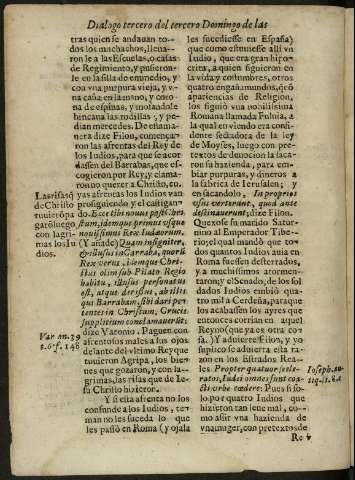 Dialogo tercero del tercero Domingo de las
tras quien se andauan to-
dos los muchachos, lleua-
ronle a las Escuelas, o casas
de Regimiento, y pusieron-
le en la silla de enmedio, y
con vna purpura vieja, y v-
na caña en la mano, y coro-
na de espinas, y mofandole
hincauan las rodillas, y pe-
dian mercedes. De esta ma-
nera dize Filon, començar-
ron las afrentas del Rey de
los Iudios, para que se acor-
dassen del Barrabas, que es-
cogieron por Rey, y clama-
ron no querer a Christo, cu-
yas afrentas los Iudios van
prosiguiendo, y el castigan-
do. Ecce tibi nouus post Chri-
stum, idemque primus vsque
nouissimus Rex Iudæorum.
(Y añade) Quam insigniter,
& illusus in
Rex verus, idemque Chri-
stus olim sub Pilato Regio
habitu, illusus personatus
est, atque derisus, ab illis
qui Barrabam, sibi dari pe-
tentes in Christum, Crucis
supplicium conclamauerũt:
dize Yantonio. Paguen con
afrentosos males a sus ojos
delante del vltimo Rey que
tuuieron Agripa, los bien-
es que gozaron, y con la-
grimas, las risas que de Ie-
su Christo hizieron.
Y si esta afrenta no les
confunde a los Iudios, te-
man no les suceda lo que
les passò en Roma (y ojala
Las risas q̃
tuuierõ pa
garõ luego
con lagri-
mas los Iu
dios.
Var an. 39
s. 6. f. 148
les sucediesse en España)
que como estuuiesse alli vn
Iudio, que era gran hipo-
crita, a quien siguieron en
la vida, y costumbres, otros
quatro engañamundos, cõ
apariencias de Religion,
los siguiò vna nobilissima
Romana llamada Fuluia, a
la qual en viendo era confi-
dente sectadora de la ley
de Moyses, luego con pre-
textos de deuocion la saca-
ron su hazienda, para em-
biar purpuras, y dineros a
la fabrica de Ierusalen; y
en sacandolo, In proprios
vsus verterunt, quod ante
destinauerunt; dize Filon.
Quexose su marido Satur-
nino al Emperador Tibe-
rio; el qual mandò que to-
dos quantos Iudios auia en
Roma fuessen desterrados,
y a muchissimos atormen-
taron; y el Senado, de los sol
dados Iudios embiò qua-
tro mil a Cerdeña, para que
los acabassen los ayres que
entonces corrian en aquel
Reyno (que ya es otra co-
sa.) Y aduierte Filon, y yo
suplico se aduierta esta ra-
zon en los Estrados Rea-
les. Propter quatuor scele-
ratos, Iudæi omnes sunt coa-
cti vrbe cædere: Pues si so-
lo por quatro Iudios que
hiziston tan leue mal, co-
mo assir vna hazienda de
vna muger, con pretextos de
Ioseph. an-
tiq. l. 18. c.
Re-